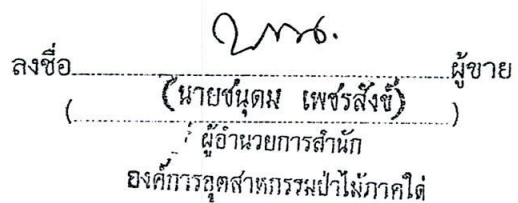 ลงชื่อ ผู้ขาย
(นายชนุดม เพชรสังข์)
( )
ผู้อำนวยการสำนัก
องค์การอุตสาหกรรมป่าไม้ภาคใต้